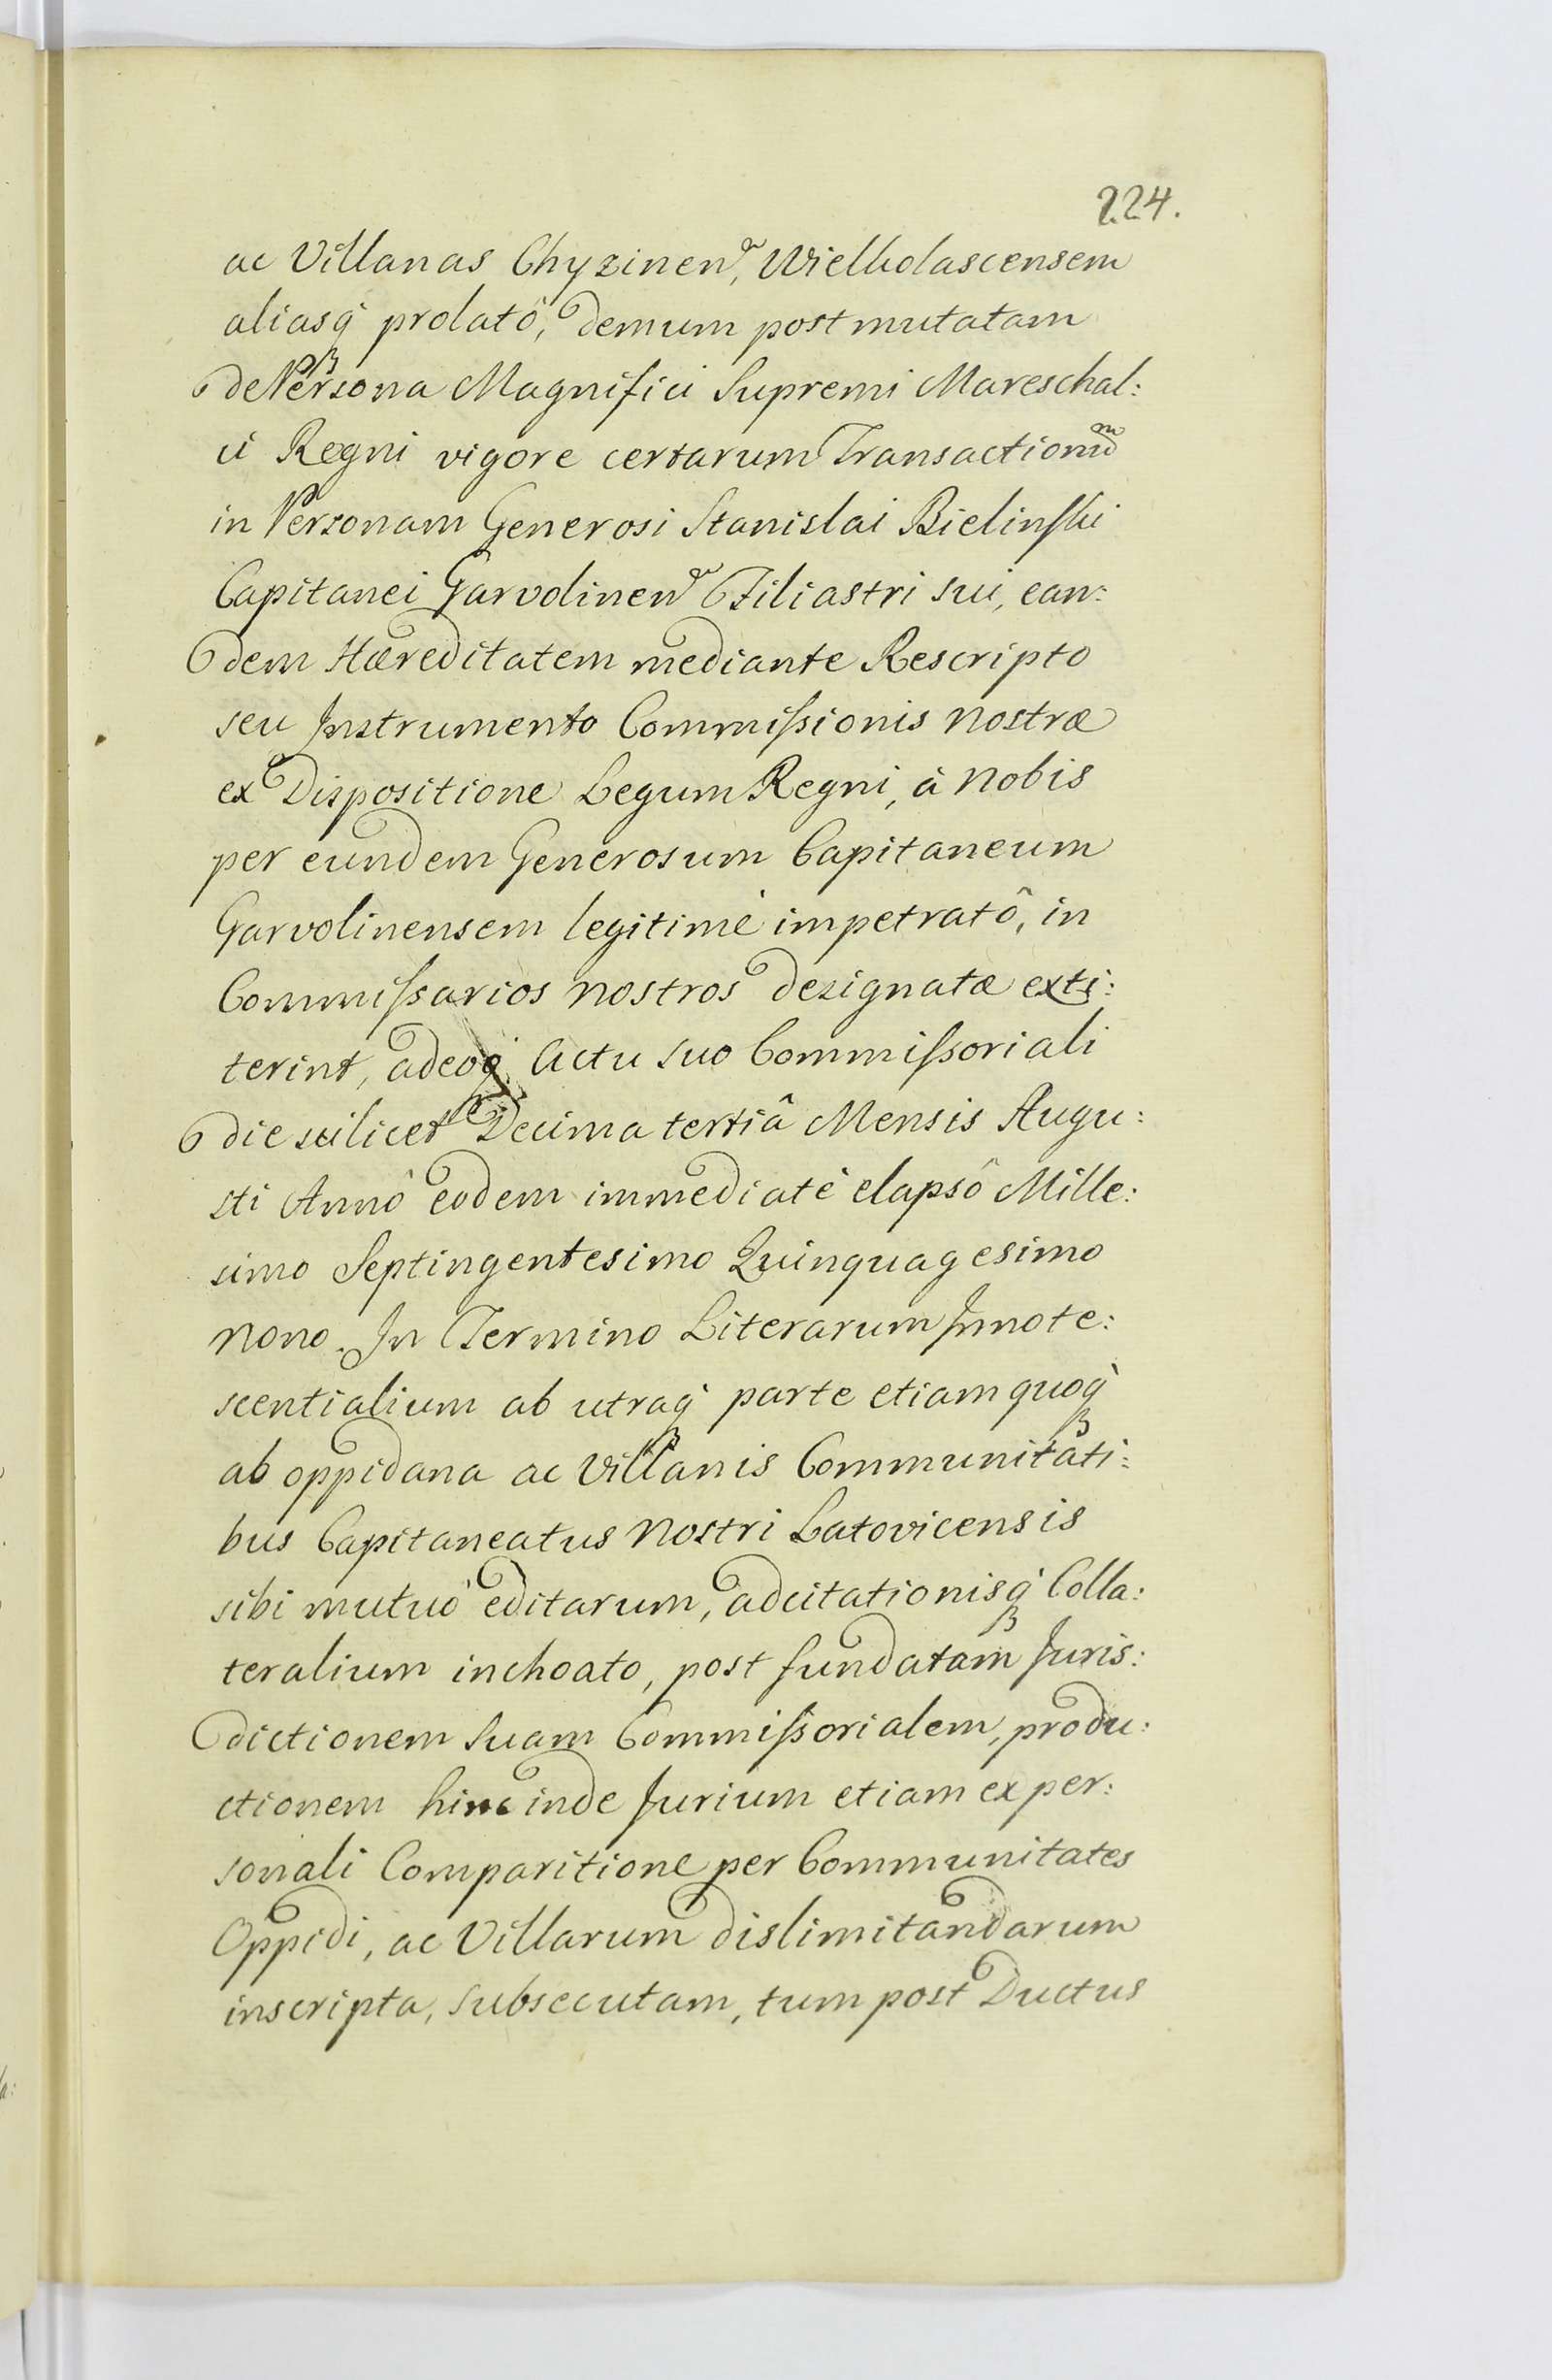 224.
ac Villanas Chyzinen, Wielholascensem
aliasq́ prolatô, demum post mutatam
de Persona Magnifici Supremi Mareschal:
ci Regni vigore certarum Transactionũ
in Personam Generosi Stanislai Bielinſki
Capitanei Garvolinen Filiastri sui, ean:
dem Hæreditatem mediante Rescripto
seu Instrumento Commiſsionis nostræ
ex Dispositione Legum Regni, à nobis
per eundem Generosum Capitaneum
Garvolinensem legitimè impetratô, in
Commiſsarios nostros designatæ exti:
terint, adeoq́ Actu suo Commiſsoriali
die scilicet Decima tertiâ Mensis Augu:
sti Annô eodem immediatè elapsô Mille:
simo Septingentesimo Quinquagesimo
nono. In Termino Literarum Innote:
scentialium ab utraq́ parte etiam quoq́
ab oppidana ac Villanis Communitati:
bus Capitaneatus nostri Latovicensis
sibi mutuò editarum, adcitationisq́ Colla:
teralium inchoato, post fundatam Juris:
dictionem suam Commiſsorialem, produ:
ctionem hinc inde Jurium etiam ex per:
sonali Comparitione per Communitates
Oppidi, ac Villarum dislimitandarum
inscripta, subsecutam, tum post Ductus